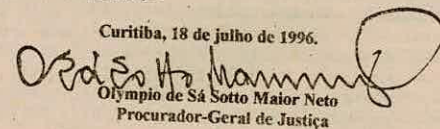 Curitiba, 18 de julho de 1996.
Olympio de Sá Sotto Maior Neto
Procurador-Geral de Justiça